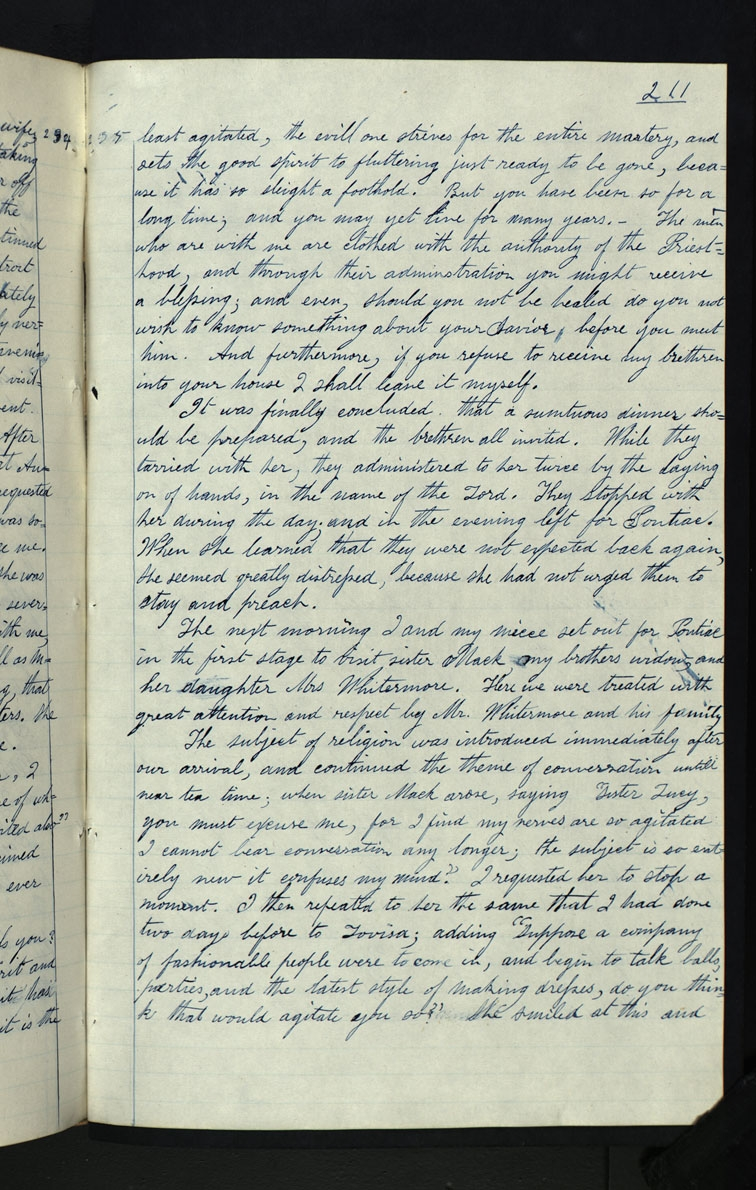 211
wife, 294 295 least agitated, the evil one strives for the entire mastery, and
taking sets the good spirit to fluttering just ready to be gone, beca=
r off use it has so sleight a foothold. But you have been so for a
the long time; and you may yet live for many years. – The men
tinued who are with me are clothed with the authority of the Priest=
troit hood, and through their adminstration you might receive
ately a blessing; and even, should you not be healed do you not
ly ver= wish to know something about your Savior, before you meet
evening him. And furthermore, if you refuse to receive my brethren
visit= into your house I shall leave it myself.
ent. It was finally concluded that a sumtuous dinner sho=
After uld be prepared, and the brethren all invited. While they
at Au= tarried with her, they administered to her twice by the laying
requested on of hands, in the name of the Lord. They stopped with
was so= her during the day, and in the evening left for Pontiac.
ee me. When she learned that they were not expected back again,
she was she seemed greatly distressed, because she had not urged them to
sever= stay and preach.
ith me, The next morning I and my niece set out for Pontiac
ll as m= in the first stage to visit sister Mack my brothers widow, and
g, that her daughter Mrs Whitermore. Here we were treated with
ters. She great attention and respect by Mr. Whitermore and his family
e. The subject of religion was introduced immediately after
I our arrival, and continued the theme of conversation untill
se of wh= near tea time; when sister Mack arose, saying "Sister Lucy,
ited also?? you must excuse me, for I find my nerves are so agitated
eimed I cannot bear conversation any longer; the subject is so ent=
ever irely new it confuses my mind." I requested her to stop a
moment. I then repeated to her the same that I had done
ls you? two days before to Lovisa; adding "Suppose a company
rit and of fashionable people were to come in, and begin to talk balls,
it has parties, and the latest style of making dresses, do you thin=
it is the k that would agitate you so?" She smiled at this and